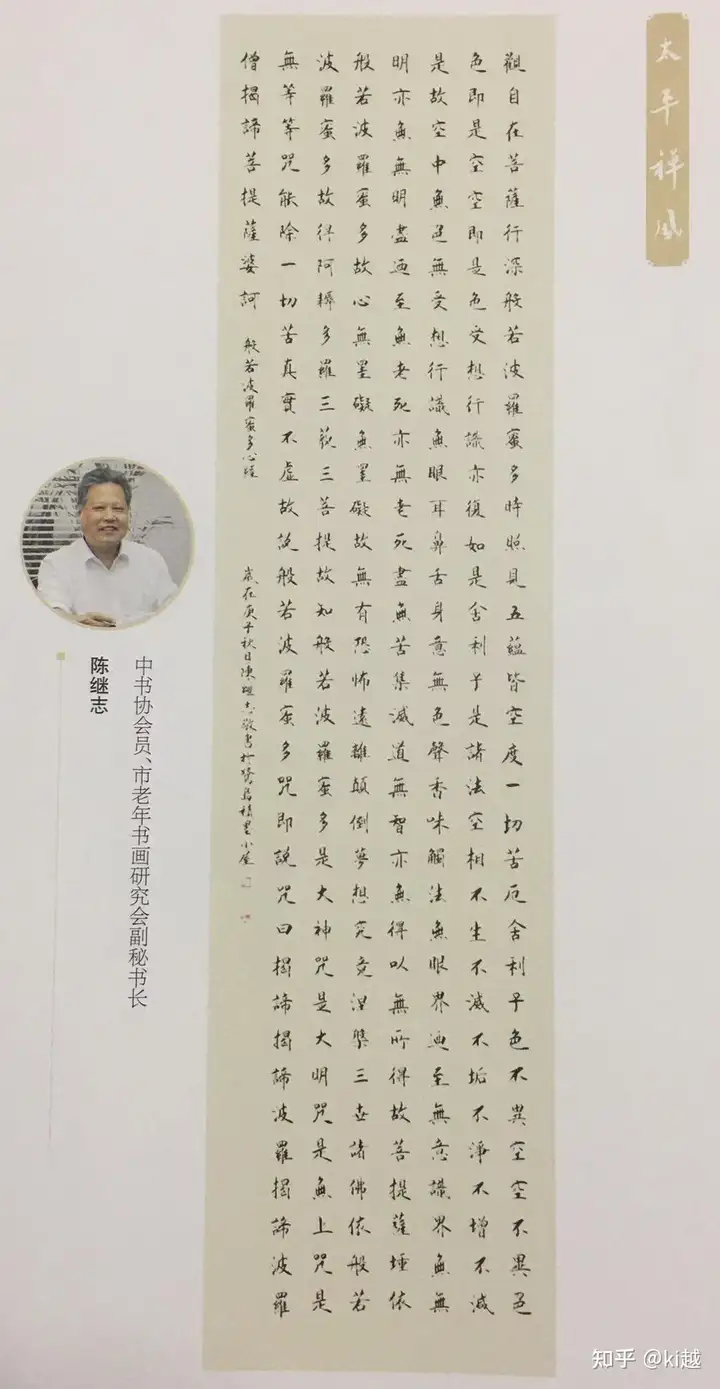 太平禅風
觀自在菩薩行深般若波羅蜜多時照見五蘊皆空度一切苦厄舍利子色不異空空不異色
色即是空空即是色受想行識亦復如是舍利子是諸法空相不生不滅不垢不淨不增不減
是故空中無色無受想行識無眼耳鼻舌身意無色聲香味觸法無眼界迺至無意識界無無
明亦無無明盡迺至無老死亦無老死盡無苦集滅道無智亦無得以無所得故菩提薩埵依
般若波羅蜜多故心無罣礙無罣礙故無有恐怖遠離顛倒夢想究竟涅槃三世諸佛依般若
波羅蜜多故得阿耨多羅三藐三菩提故知般若波羅蜜多是大神咒是大明咒是無上咒是
無等等咒能除一切苦真實不虛故說般若波羅蜜多咒即說咒曰揭諦揭諦波羅揭諦波羅
僧揭諦菩提薩婆訶 般若波羅蜜多心經 歲在庚子秋日陳繼志敬書於鷺島積墨小屋
中书协会员、市老年书画研究会副秘书长
陈继志
知乎 @ki越